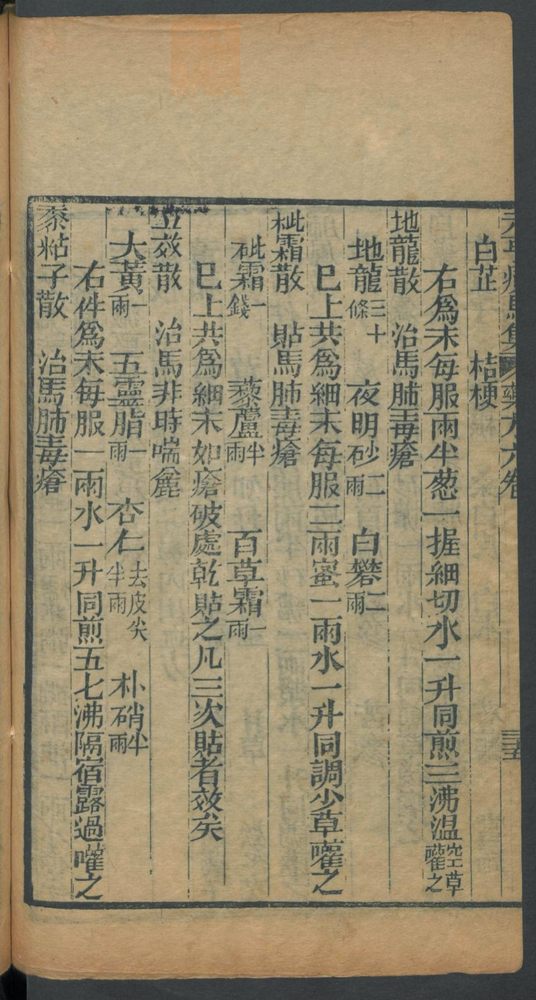 白芷　桔梗
右爲末每服兩半葱一握細切水一升同煎三沸温空草嚾之
地龍散　治馬肺毒瘡
地龍三十條　夜明砂二兩　白礬二兩
巳上共爲細末每服三兩蜜一兩水一升同調少草嚾之
砒霜散　貼馬肺毒瘡
砒霜一錢　藜蘆半兩　百草霜一兩
巳上共爲細末如瘡破處乾貼之凡三次貼者效矣
立效散　治馬非時喘麄
大黃一兩　五靈脂一兩　杏仁去皮尖半兩　朴硝半兩
右件爲末每服一兩水一升同煎五七沸隔宿露過嚾之
黍粘子散　治馬肺毒瘡